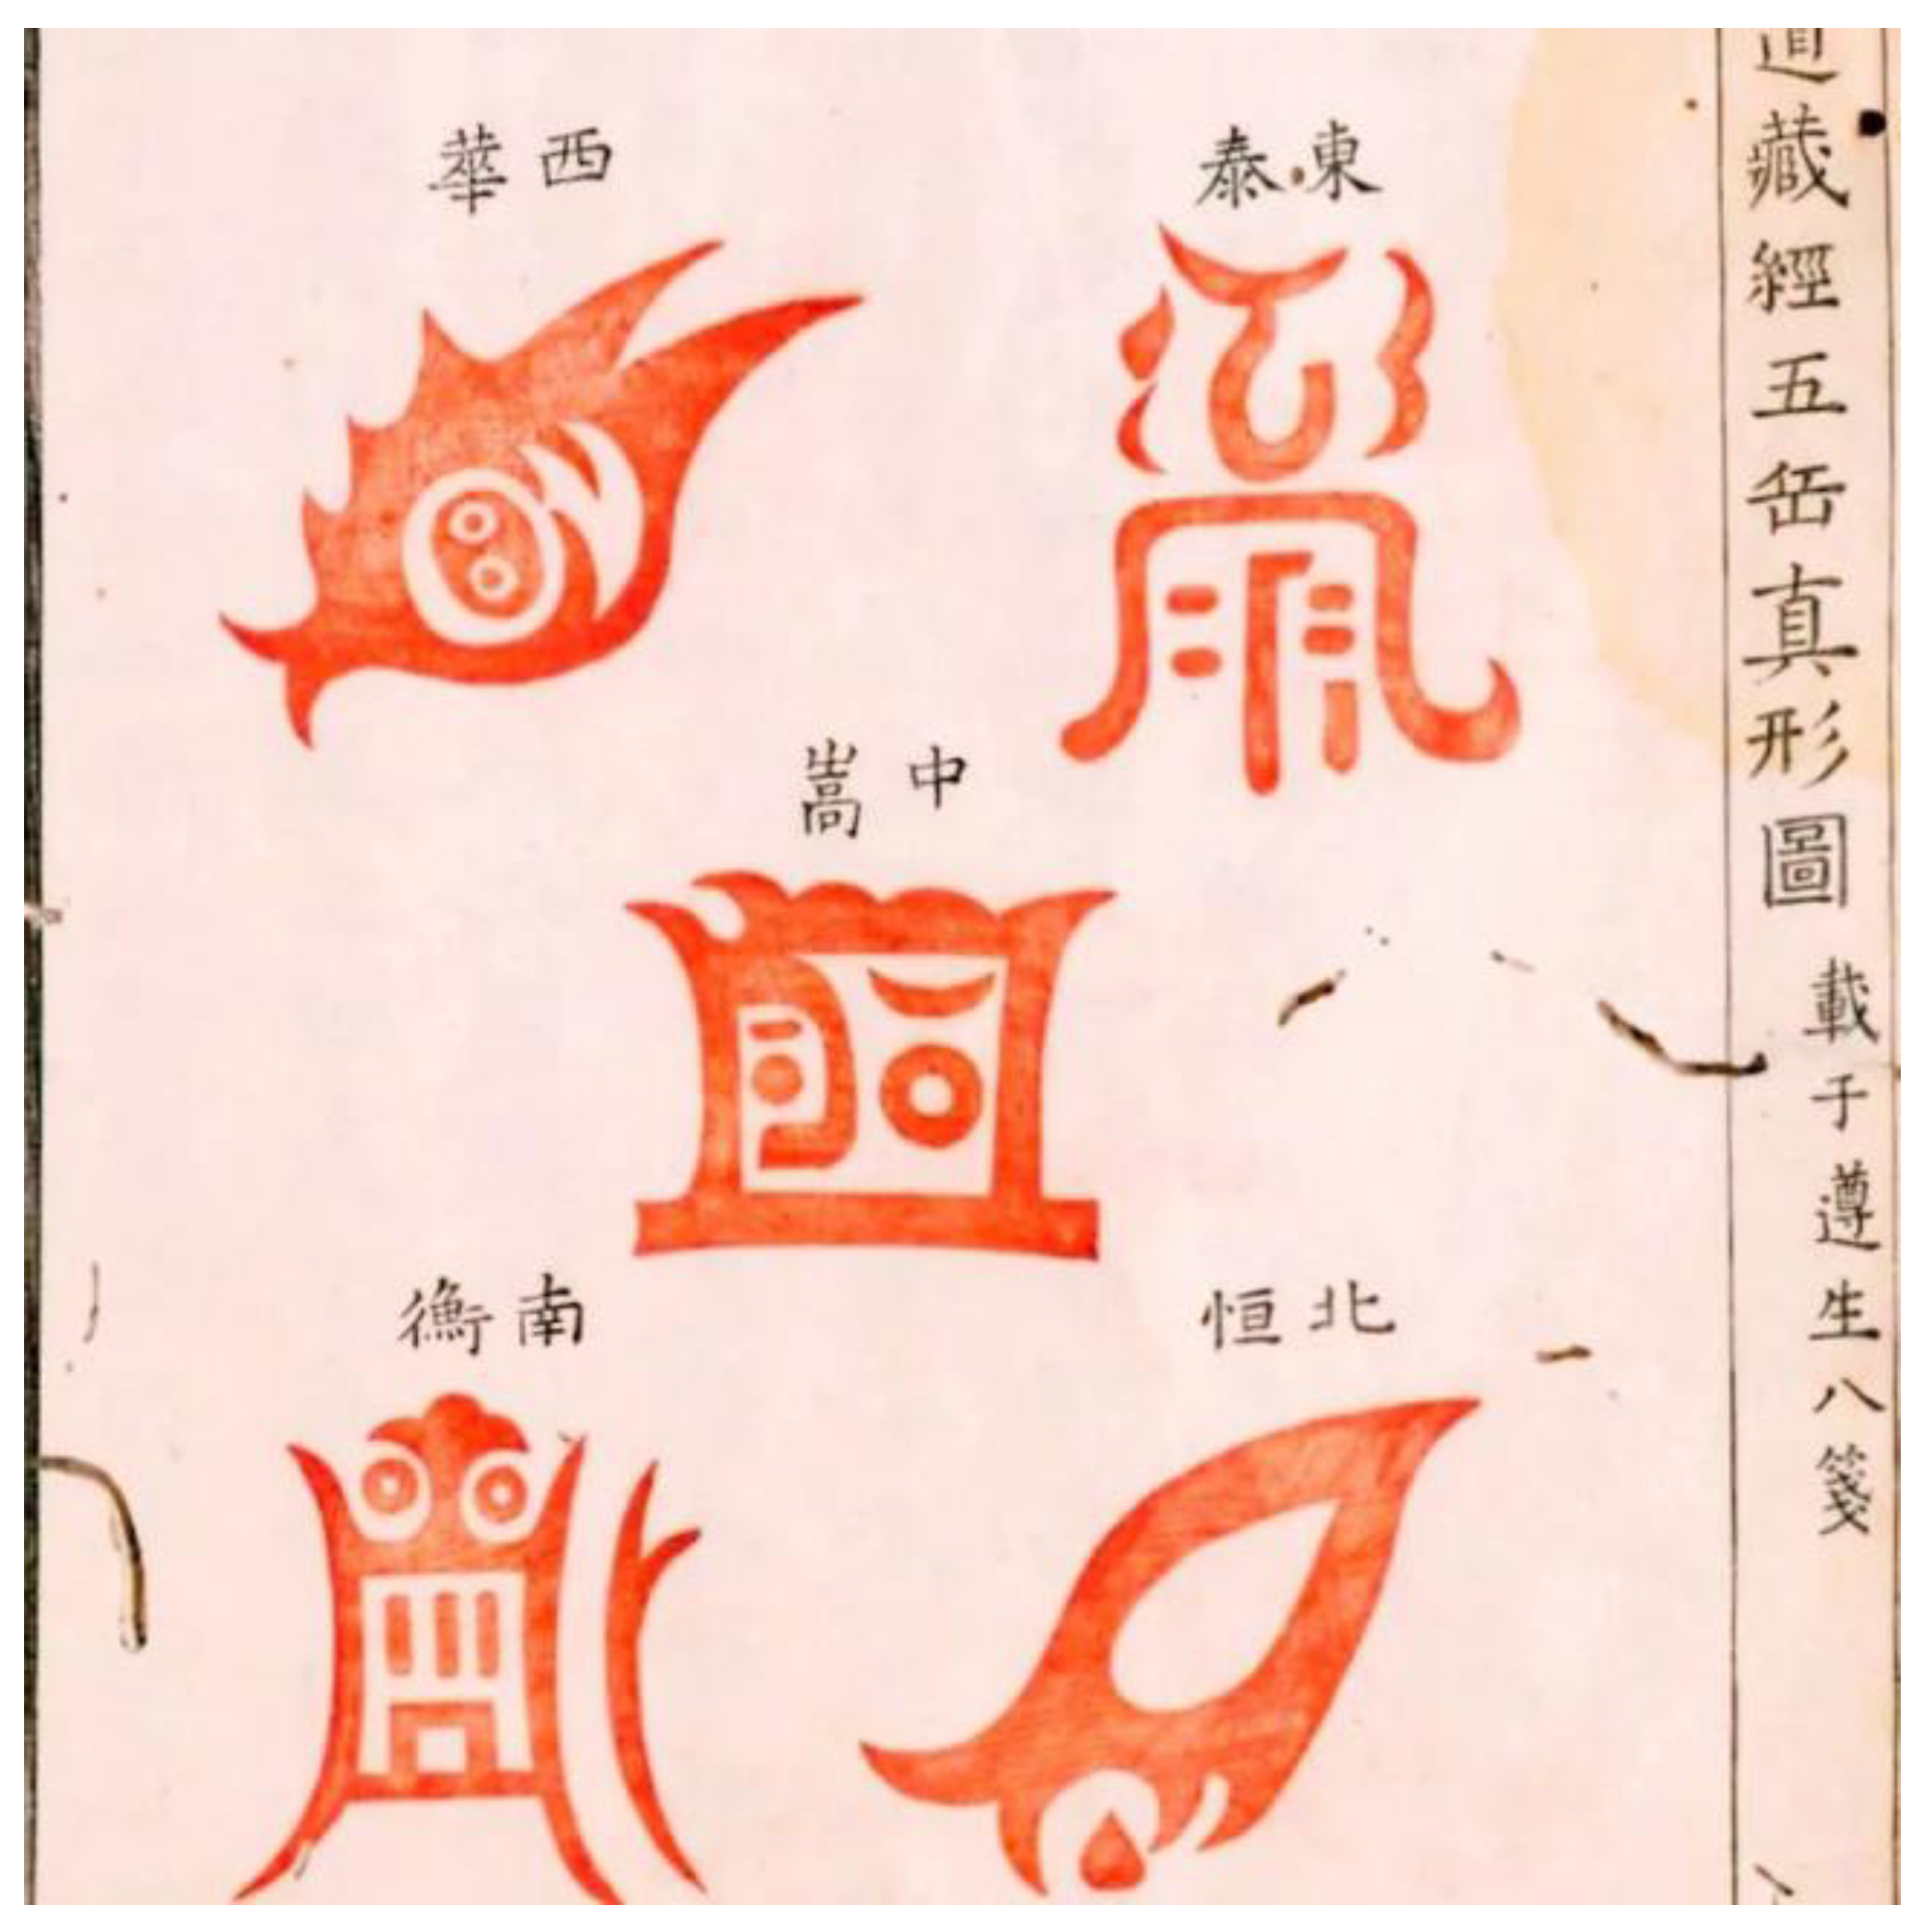 道藏經五岳真形圖 載于遵生八箋
東泰
西華
中嵩
北恒
南衡